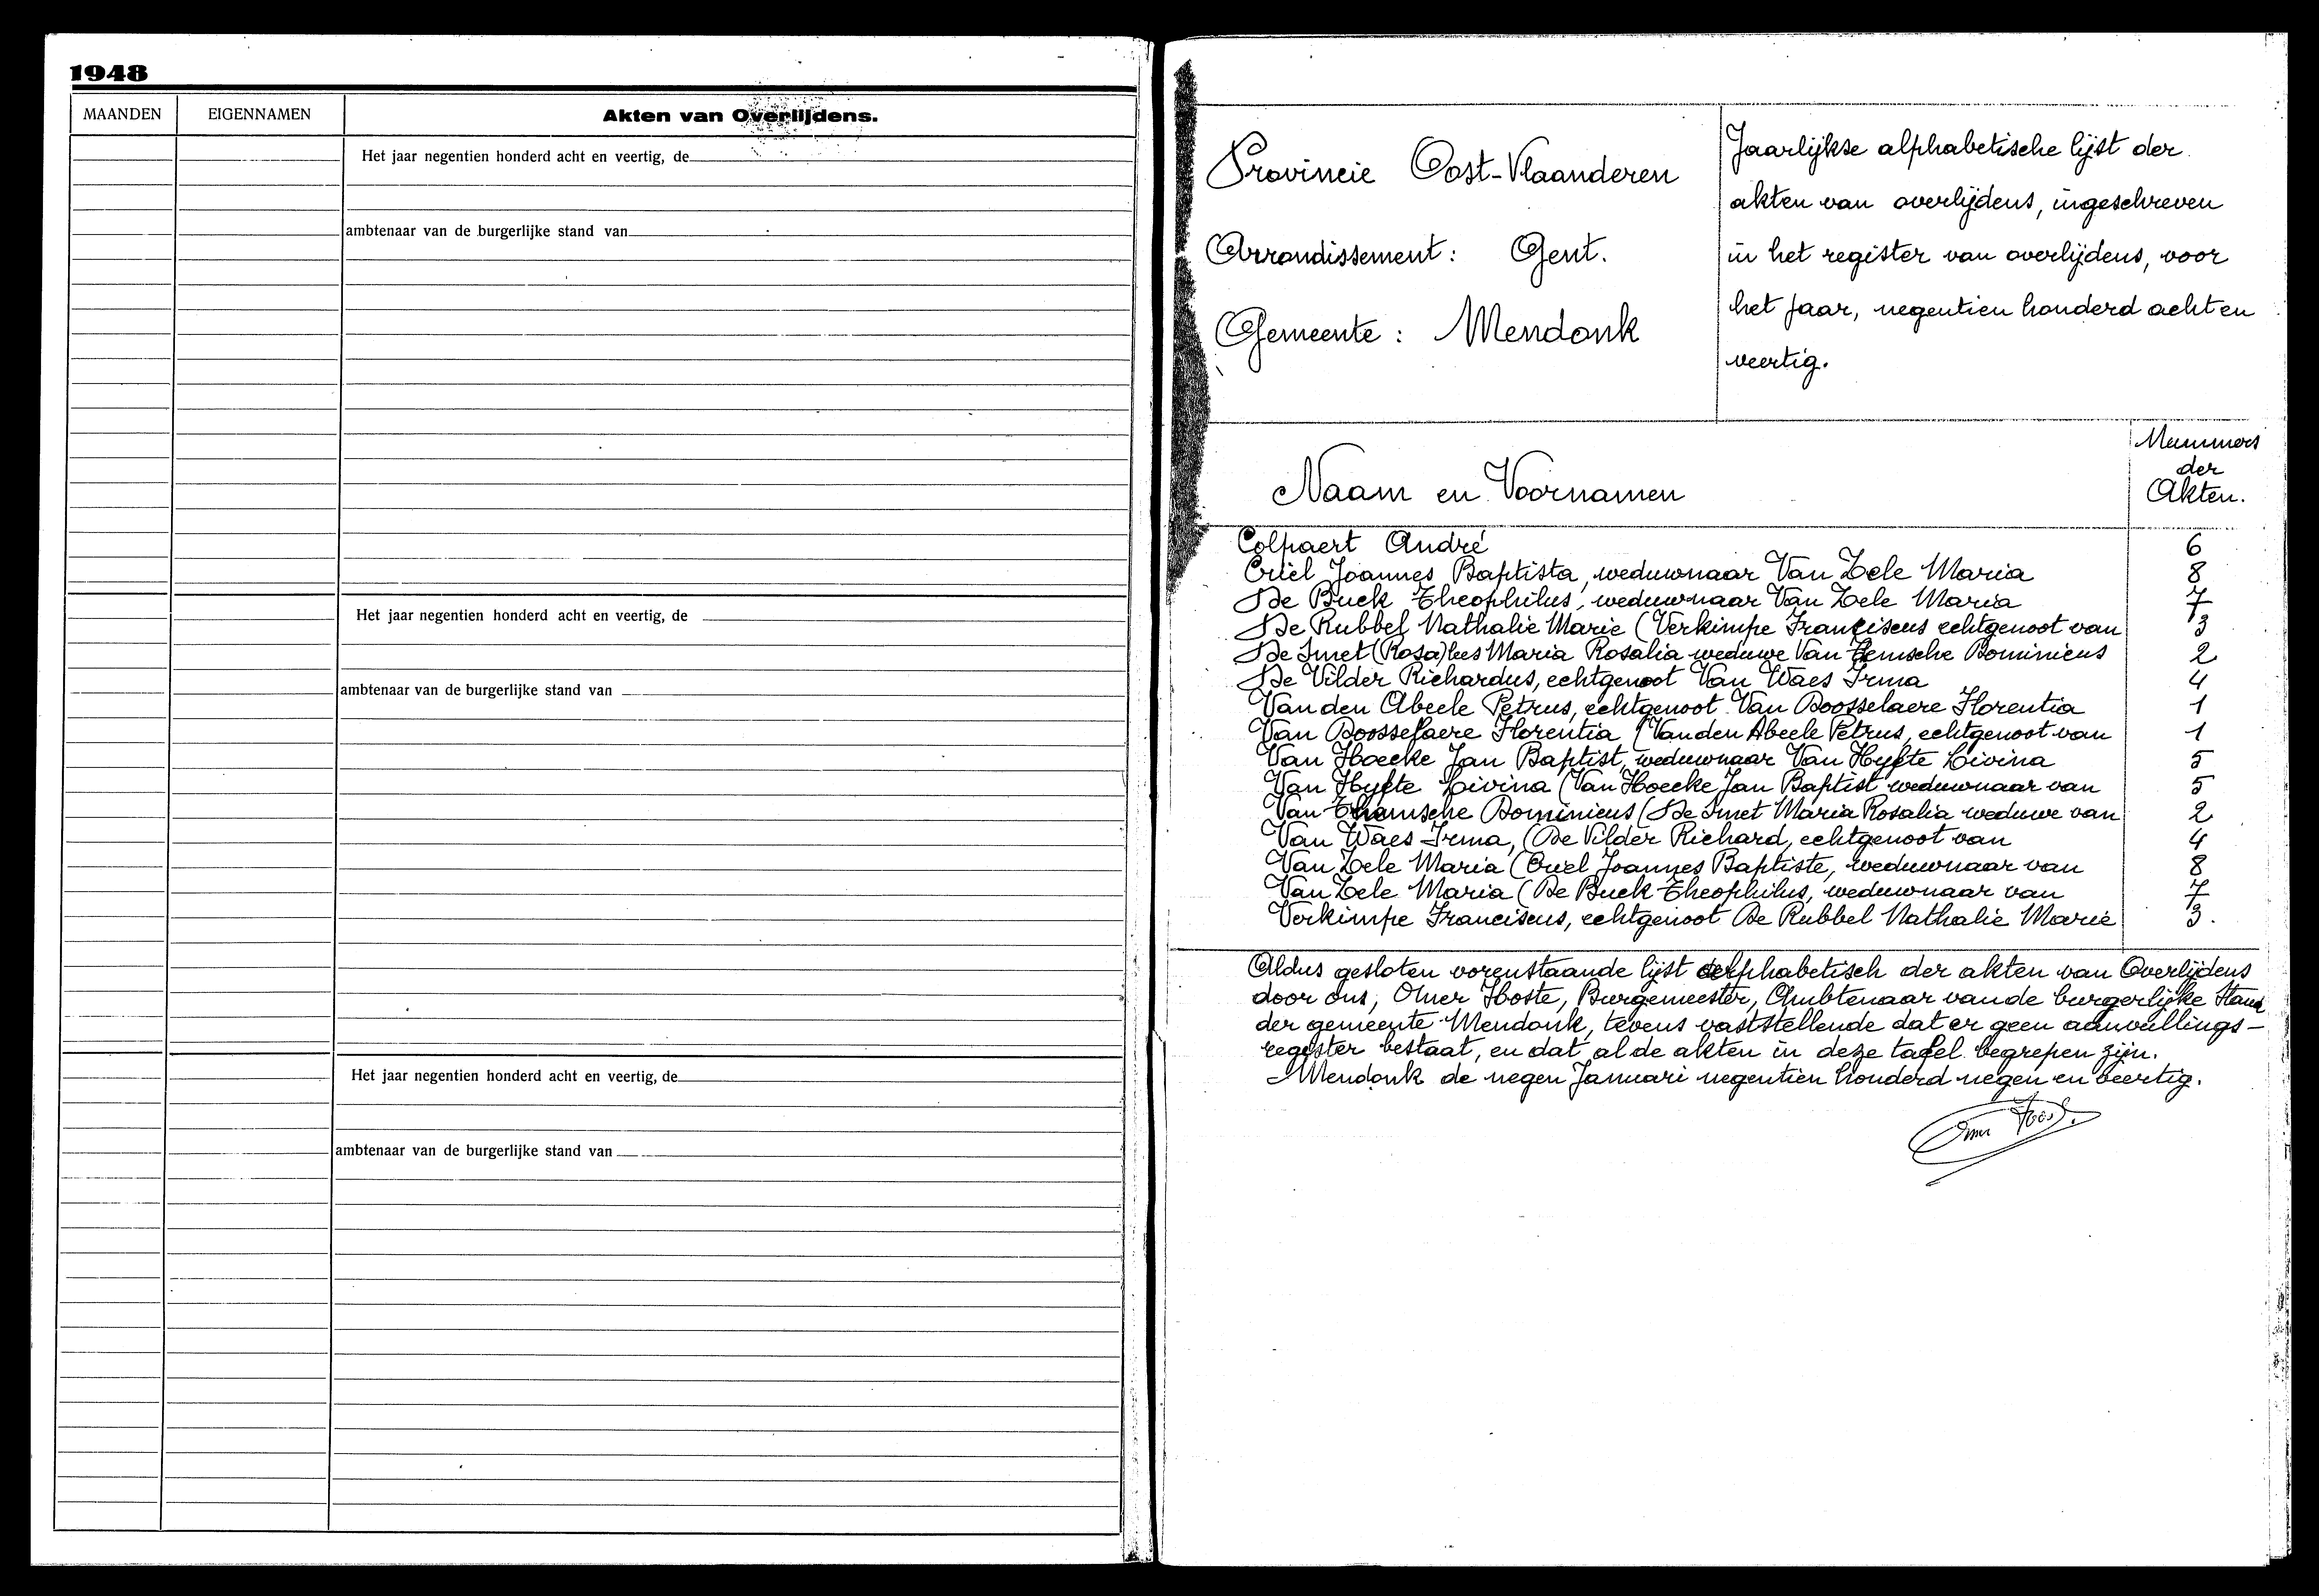 1948
MAANDEN EIGENNAMEN Akten van Overlijdens.
Het jaar negentien honderd acht en veertig, de
ambtenaar van de burgerlijke stand van
Het jaar negentien honderd acht en veertig, de
ambtenaar van de burgerlijke stand van
Het jaar negentien honderd acht en veertig, de
ambtenaar van de burgerlijke stand van
Provincie Oost-Vlaanderen
Arrondissement: Gent.
Gemeente: Mendonk
Jaarlijkse alphabetische lijst der
akten van overlijdens, ingeschreven
in het register van overlijdens, voor
het jaar, negentien honderd acht en
veertig.
Naam en Voornamen
Nummers
der
Akten.
Colpaert André 6
Criel Joannes Baptista, weduwnaar Van Zele Maria 8
De Buck Theophilus, weduwnaar Van Zele Maria 7
De Rubbel Nathalie Marie (Verkimpe Franciscus echtgenoot van 3
De Smet (Rosa) Maria Rosalia weduwe Van Dominicus 2
De Vilder Richardus, echtgenoot Van Waes Irma 4
Van den Abeele Petrus, echtgenoot Van Boosselaere Florentia 1
Van Boosselaere Florentia (Van den Abeele Petrus, echtgenoot van 1
Van Hoecke Jan Baptist, weduwnaar Van Hyfte Livina 5
Van Hyfte Livina (Van Hoecke Jan Baptist weduwnaar van 5
Van Dominicus (De Smet Maria Rosalia weduwe van 2
Van Waes Irma, (De Vilder Richard, echtgenoot van 4
Van Zele Maria (Criel Joannes Baptiste, weduwnaar van 8
Van Zele Maria (De Buck Theophilus, weduwnaar van 7
Verkimpe Franciscus, echtgenoot De Rubbel Nathalie Marie 3.
Aldus gesloten vorenstaande lijst alphabetisch der akten van Overlijdens
door ons, Omer Hoste, Burgemeester, Ambtenaar van de burgerlijke Stand
der gemeente Mendonk, tevens vaststellende dat er geen aanvullings-
register bestaat, en dat al de akten in deze tafel begrepen zijn.
Mendonk de negen Januari negentien honderd negen en veertig.